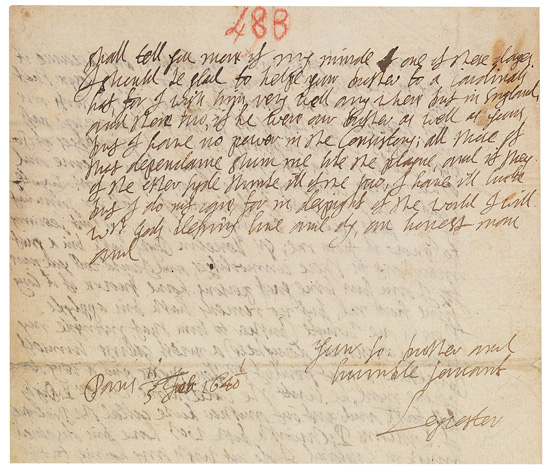 488
shall tell you more of my minde one of these dayes.
I should be glad to helpe your brother to a Cardinals
hat for I wish him very well any where but in England
and there too, if he were our brother as well as yours
but I have no power in the Consistory; all those of
that dependance shun me like the plague, and if they
of the other syde thinke ill of me too, I have ill lucke
but I do not care for in despight of the world I will
with Gods blessing live and dy an honest man
and
Your Lo: brother and
humble servant
Paris Feb 1640
Leycester